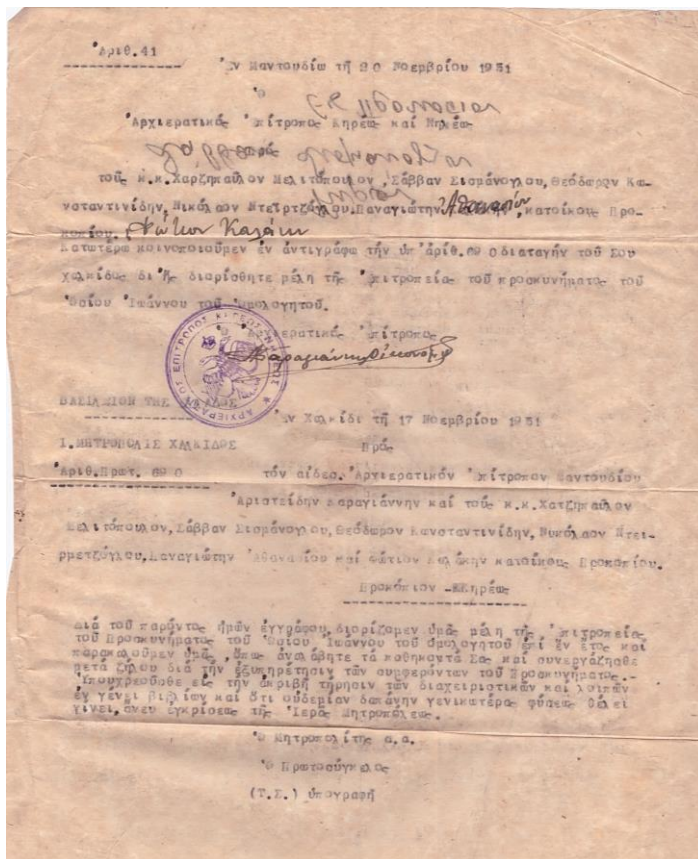 Ἀριθ.41
Ἐν Μαντουδίῳ τῇ 20 Νοεμβρίου 1931
Ὁ
Ἀρχιερατικός Ἐπίτροπος Κηρέως καί Νηλέως
Πρός
τούς κ.κ.Χαρζηπαῦλον Μελιτόπουλον, Σάββαν Σισμάνογλου, Θεόδωρον Κων-
σταντινίδην, Νικόλαον Ντεϊρτζόγλου, Παναγιώτην Ἀθανασίου, κατοίκους Προ-
κοπίου. Φώτιον Καλάκην
Κατωτέρω κοινοποιοῦμεν ἐν ἀντιγράφῳ τήν ὑπ' ἀριθ.690 διαταγήν τοῦ Σου
χαλκίδος δι' ἧς διορίσθητε μέλη τῆς Ἐπιτροπείας τοῦ προσκυνήματος τοῦ
Ὁσίου Ἰωάννου τοῦ Ὁμολογητοῦ.
Ὁ Ἀρχιερατικός Ἐπίτροπος
ΑΡΧΙΕΡΑΤΙΚΟΣ ΕΠΙΤΡΟΠΟΣ
ΒΑΣΙΛΕΙΟΝ ΤΗΣ ΕΛΛΑΔΟΣ
Ἐν Χαλκίδι τῇ 17 Νοεμβρίου 1931
Ι.ΜΗΤΡΟΠΟΛΙΣ ΧΑΛΚΙΔΟΣ
Πρός
Ἀριθ.Πρωτ. 690
τόν αἰδεσ. Ἀρχιερατικόν Ἐπίτροπον Μαντουδίου
Ἀριστείδην Καραγιάννην καί τούς κ.κ. Χατζηπαῦλον
Μελιτόπουλον, Σάββαν Σισμάνογλου, Θεόδωρον Κωνσταντινίδην, Νικόλαον Ντεϊ-
ρμετζόγλου, Παναγιώτην Ἀθανασίου καί Φώτιον Καλάκην κατοίκους Προκοπίου.
Προκόπιον -Κηρέως
Διά τοῦ παρόντος ἡμῶν ἐγγράφου, διορίζομεν ὑμᾶς μέλη τῆς Ἐπιτροπείας
τοῦ Προσκυνήματος τοῦ Ὁσίου Ἰωάννου τοῦ Ὁμολογητοῦ ἐπί ἕν ἔτος καί
παρακαλοῦμεν ὑμᾶς, ὅπως ἀναλάβητε τά καθήκοντά Σας καί συνεργάζησθε
μετά ζήλου διά τήν ἐξυπηρέτησιν τῶν συμφερόντων τοῦ Προσκυνήματος.-
Ὑποχρεοῦσθε εἰς τήν ἀκριβῆ τήρησιν τῶν διαχειριστικῶν καί λοιπῶν
ἐν γένει βιβλίων καί ὅτι οὐδεμίαν δαπάνην γενικωτέρας φύσεως θέλει
γίνει, ἄνευ ἐγκρίσεως τῆς Ἱερᾶς Μητροπόλεως.
Ὁ Μητροπολίτης α.α.
Ὁ Πρωτοσύγκελος
(Τ.Σ.) ὑπογραφή